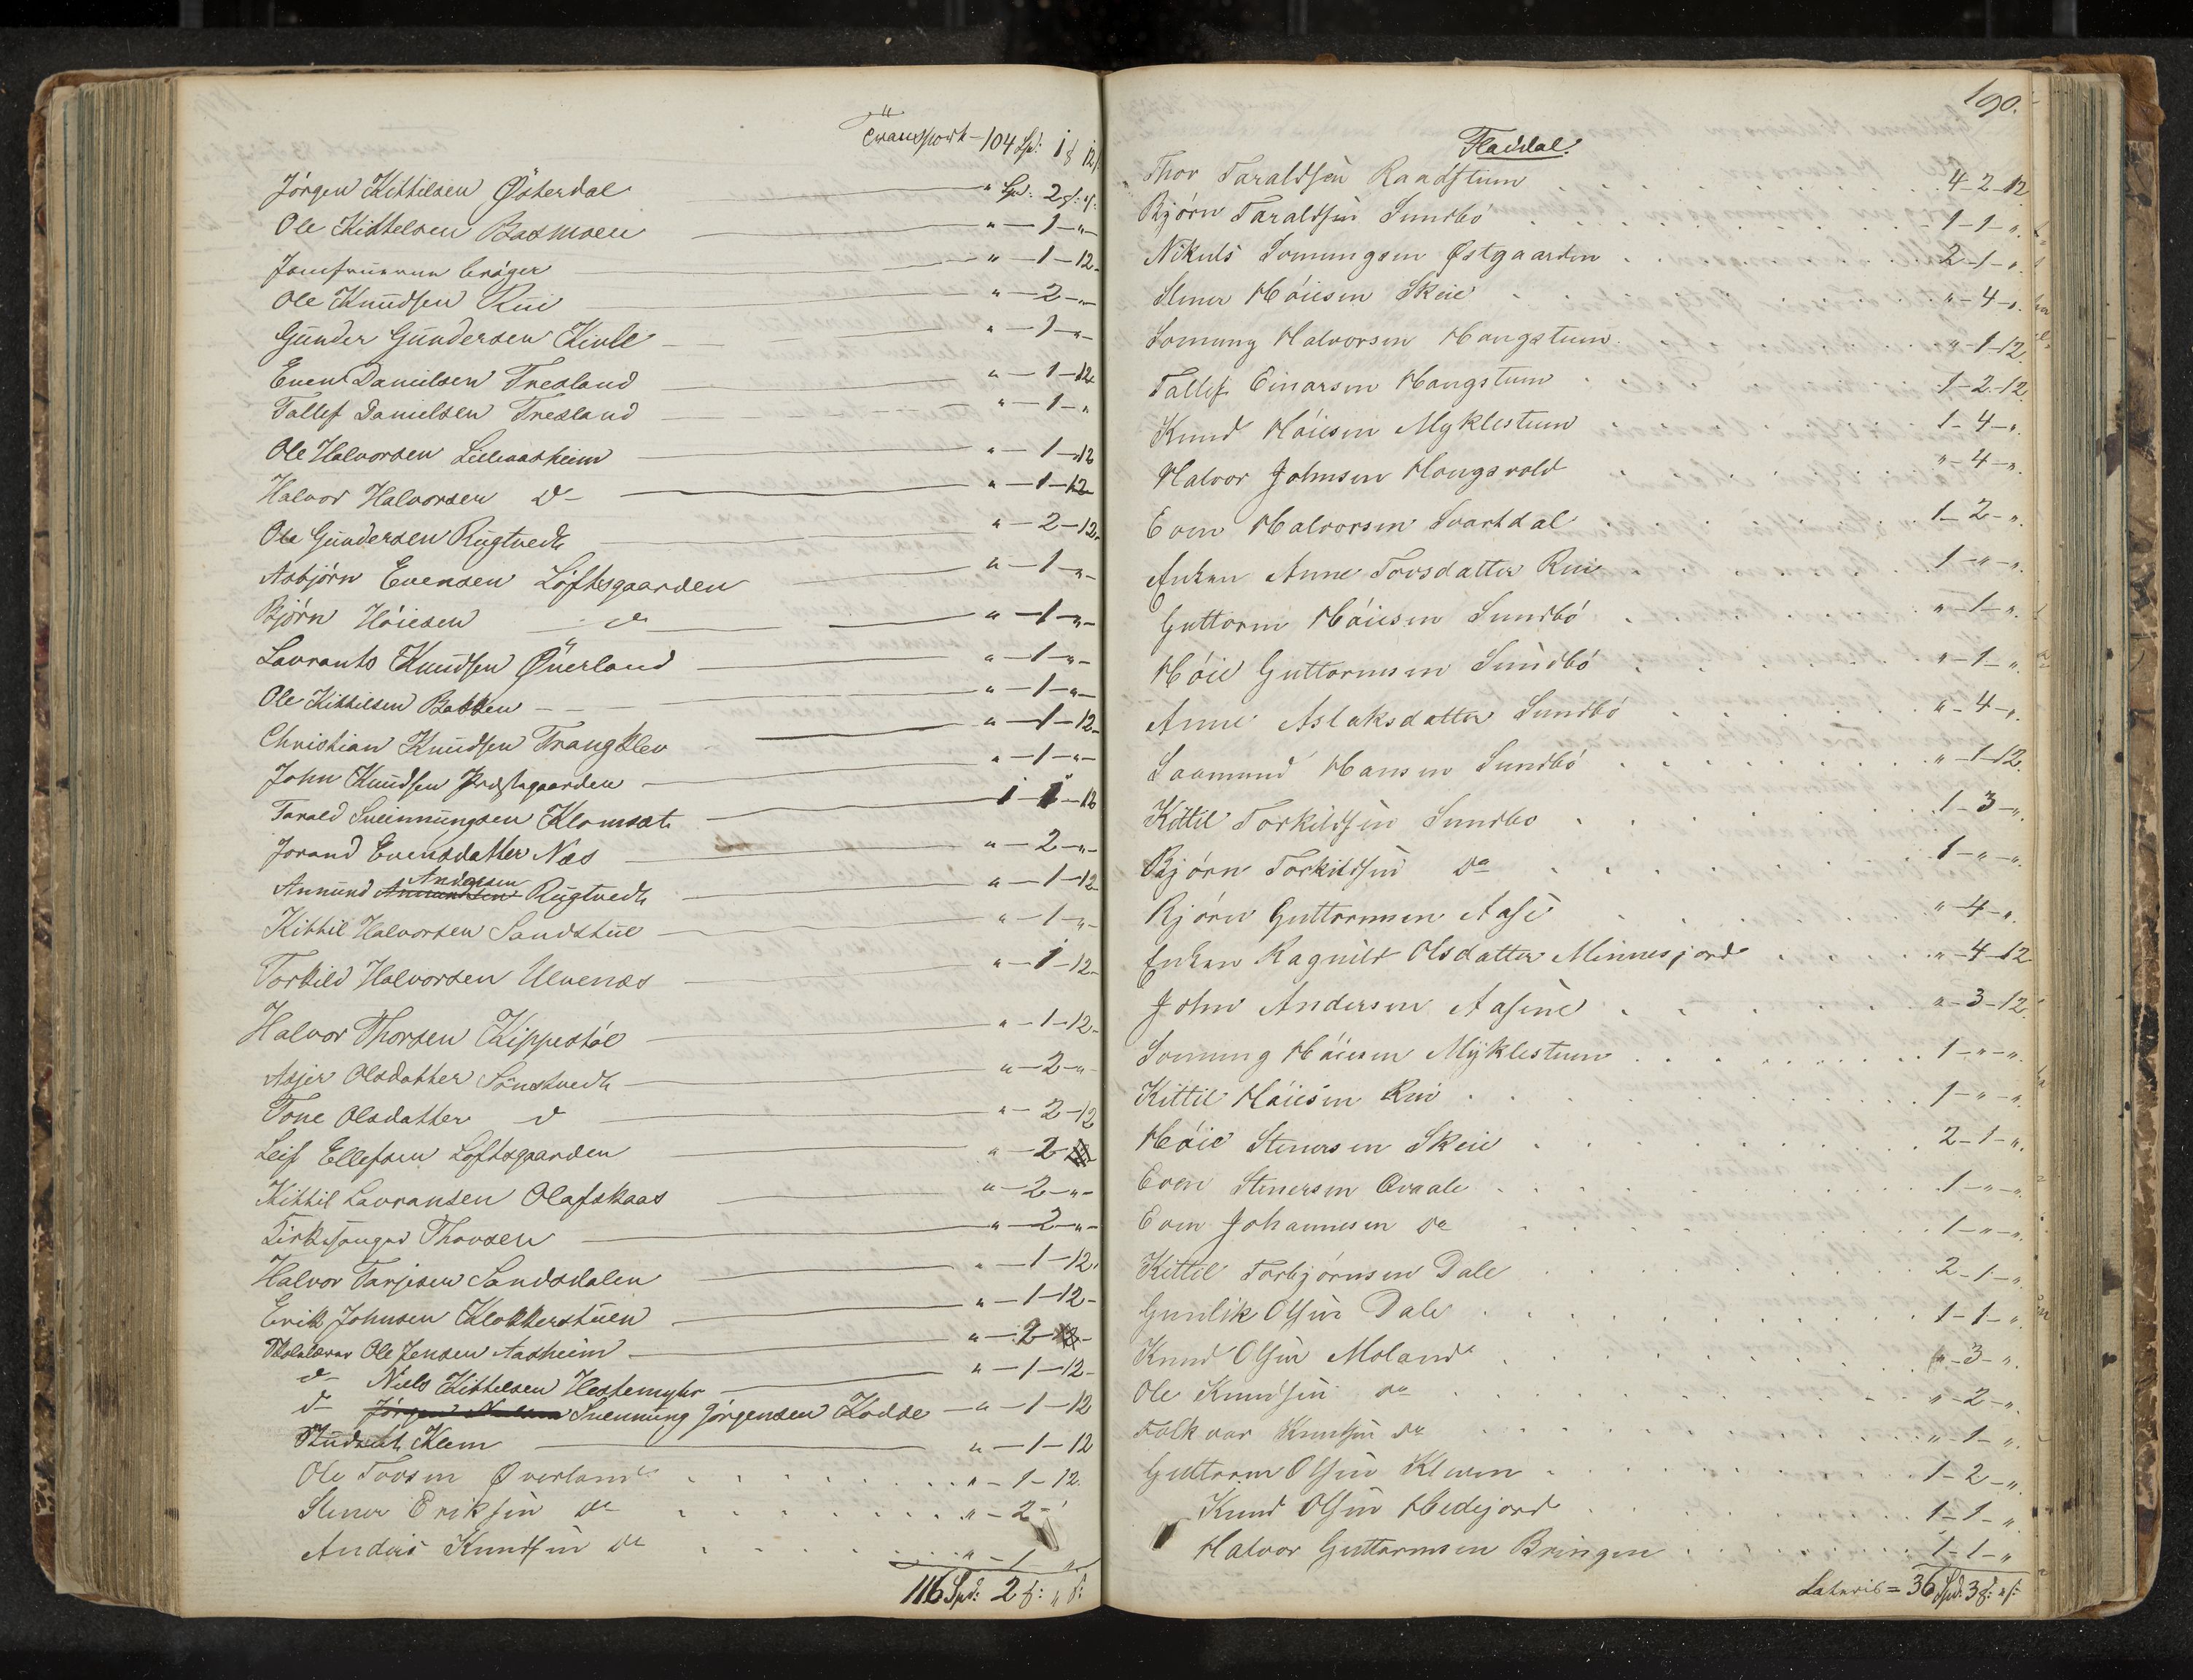 Transport - 104 Spd: 1 ƒ 12 ſ
Jörgen Kittilsen Österdal — " Spd: 2 ƒ: " ſ:
Ole Kittelsen Basmoen — " — 1 — " —
Jomfruerne Cröger — " — 1 — 12 -
Ole Knudsen Rui — " — 2 — " —
Gunder Gundersen Kivle — " — 1 — " -
Even Danielsen Tresland — " — 1 — 12
Tallef Danielsen Tresland — " — 1 — "
Ole Halvorsen Lilleaasheim — " — 1 — 12
Halvor Halvorsen do — " — 1 — 12
Ole Gundersen Rugtvedt — " — 2 — 12 -
Asbjörn Evensen Löftsgaarden — " — 1 — " -
Björn Höiesen do — " — 1 — " -
Lavrants Knudsen Överland — " — 1 — " -
Ole Kittilsen Bakken — " — 1 — " —
Christian Knudsen Trangklev — " — 1 — 12 -
John Knudsen Præstegaarden — " — 1 — " -
Tarald Sveinnungsen Klomset — 1 — 1 — 12
Jorand Evensdatter Næs — " — 2 — " -
Annund Amundsen Andersen Rugtvedt — " — 1 — 12
Kittil Halvorsen Sandstue — " — 1 — " -
Torkild Halvorsen Ulvenæs — " — 1 — 12 -
Halvor Thorsen Kippestöl — " — 1 — 12 -
Asjer Olsdatter Sönstvedt — " — 2 — " -
Tone Olsdatter do — " — 2 — 12
Leif Ellefsen Loftsgaarden — " — 2 —
Kittil Lavransen Olafskaas — " — 2 — " -
Kirkesanger Thorsen — " — 2 — " -
Halvor Tarjesen Sandsdalen — " — 1 — 12
Erik Johnsen Klokkerstuen — " — 1 — 12 -
Skolelærer Ole Jensen Aasheim — " — 2 —
do Niels Kittelsen Hestemyhr — " — 1 — 12 -
do Svennung Jörgensen Kodde — " — 1 — 12
Student Klem — " — 1 — 12
Ole Tovsen Överland . . . " — 1 — 12.
Stener Eriksen do . . . " — 2 - '
Anders Knudsen do . . . " — 1 "
116 Spd: 2 ƒ: " ſ:
190.
Flatdal:
Thor Taraldsen Raadstum . . . 4 - 2 - 12
Björn Taraldsen Sundbö . . . 1 - 1 - ".
Nikuls Somungsen Østgaarden . . . 2 - 1 - ".
Stener Höiesen Skeie . . . " - 4 - ".
Somung Halvorsen Haugstum . . . " - 1 - 12.
Tallef Einarsen Haugstum . . . 1 - 2 - 12.
Knud Höiesen Myklestum . . . 1 - 4 - ".
Halvor Johnsen Hougsvold . . . " - 4 - ".
Even Halvorsen Svartdal . . . 1 - 2 - ".
Enken Anne Tovsdatter Rui . . . 1 - " - ".
Guttorm Höiesen Sundbö . . . " - 1 - ".
Höie Guttormsen Sundbö . . . " - 1 - ".
Anne Aslaksdatter Sundbö . . . " - 4 - ".
Saamund Hansen Sundbö . . . " - 1 - 12.
Kittil Torkildsen Sundbo . . . 1 - 3 - ".
Björn Torkildsen do . . . 1 - " - ".
Björn Guttormsen Aase . . . " - 4 - ".
Enken Ragnild Olsdatter Minnesjord . . . " - 4 - 12
John Andersen Aasene . . . " - 3 - 12.
Somung Höiesen Myklestum . . . 1 - " - ".
Kittil Höiesen Rui . . . 1 - " - ".
Höie Stenersen Skeie . . . 2 - 1 - ".
Even Stenersen Qvaale . . . 1 - " - ".
Even Johannesen do . . . 1 - " - ".
Kittil Torbjörnsen Dale . . . 2 - 1 - ".
Gunlik Olsen Dale . . . 1 - 1 - ".
Knud Olsen Moland . . . " - 3 - ".
Ole Knudsen do . . . " - 2 - ".
Folkvar Knudsen do . . . " - 1 - ".
Guttorm Olsen Kleven . . . 1 - 2 - ".
Knud Olsen Hedejord . . . 1 - 1 - ".
Halvor Guttormsen Bringen . . . 1 - 1 - "
Lateris = 36 Spd: 3 ƒ: " ſ: